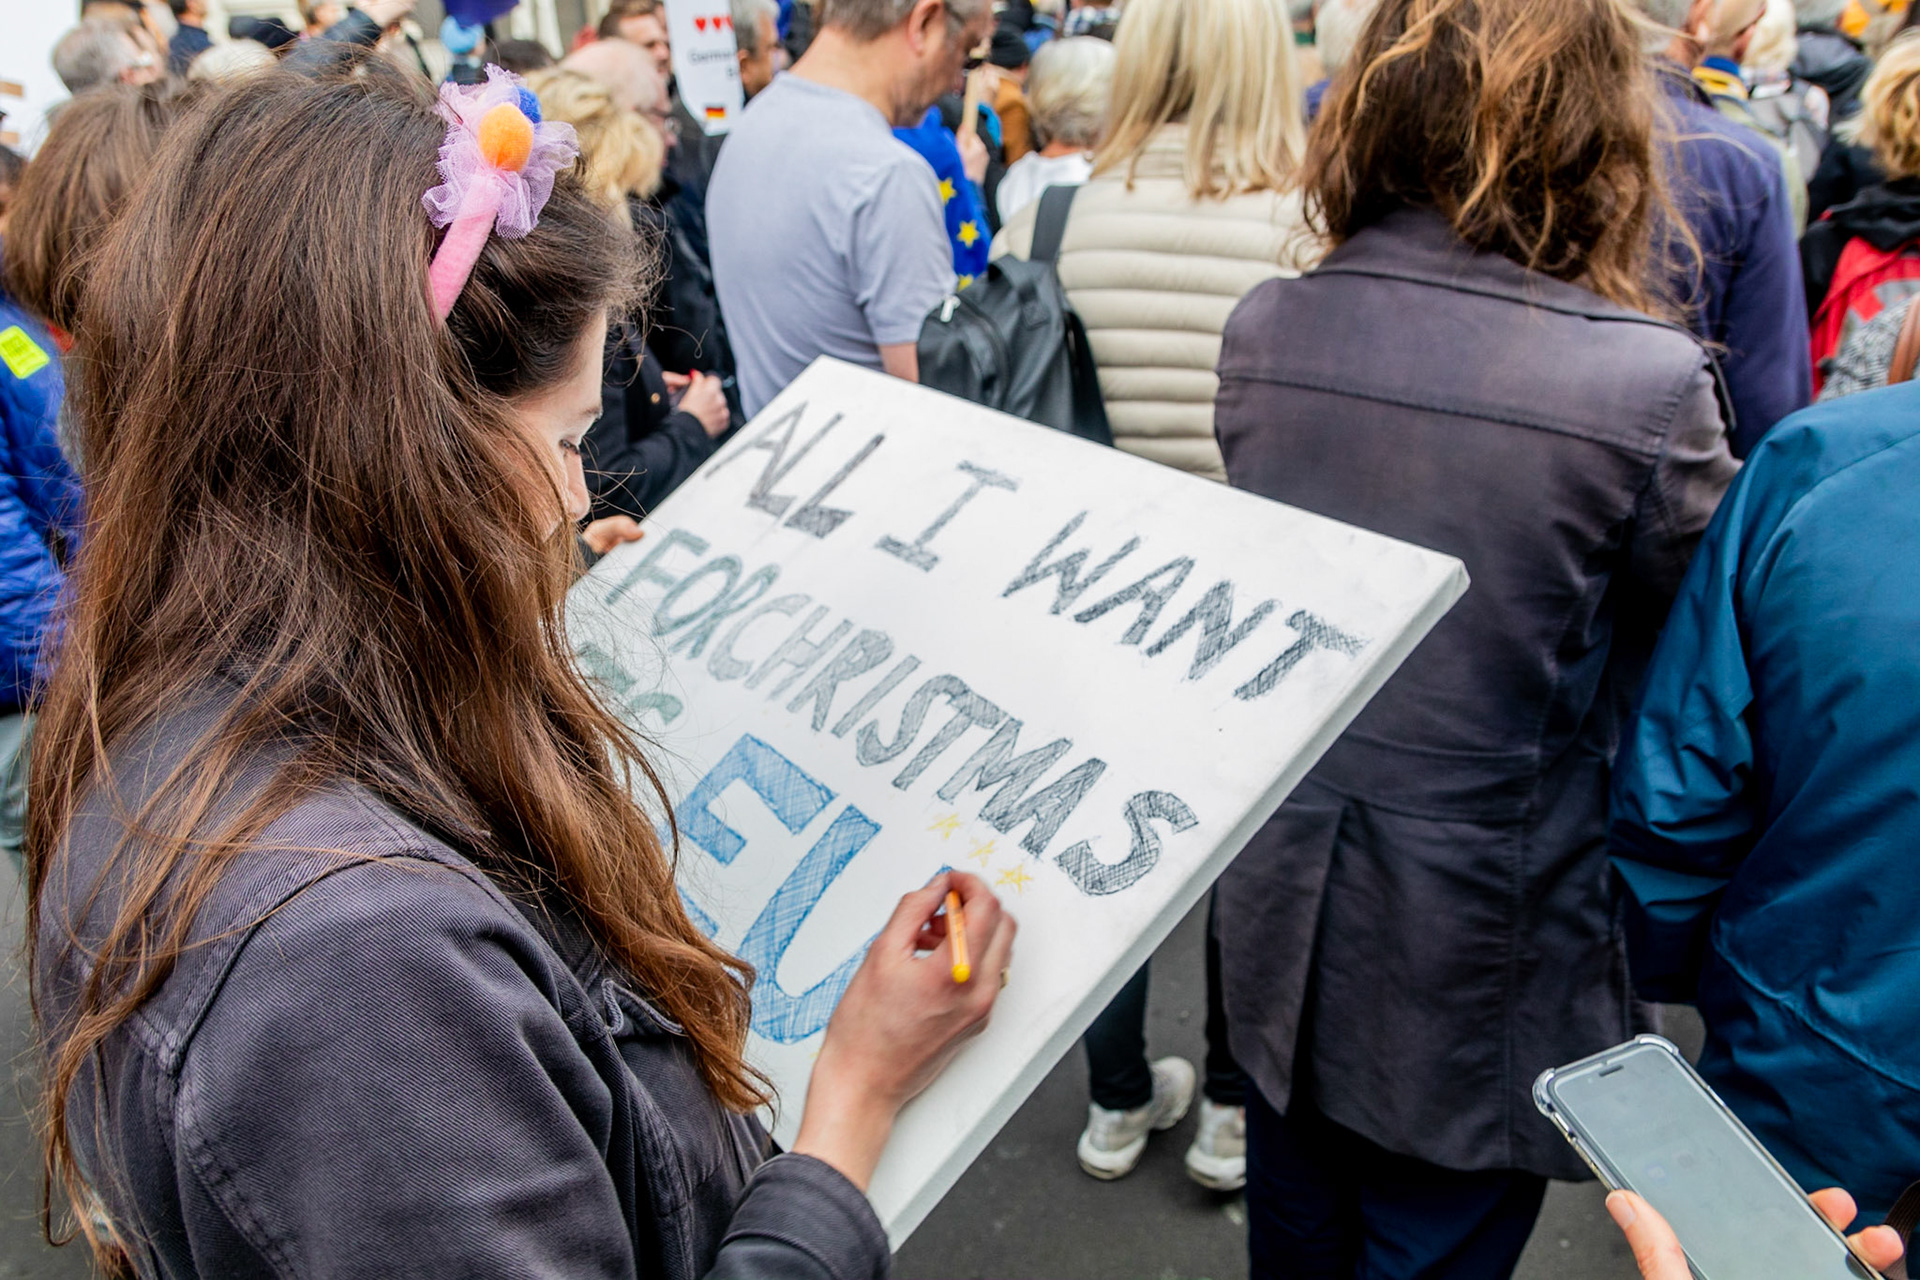 ALL I WANT
FOR CHRISTMAS
EU